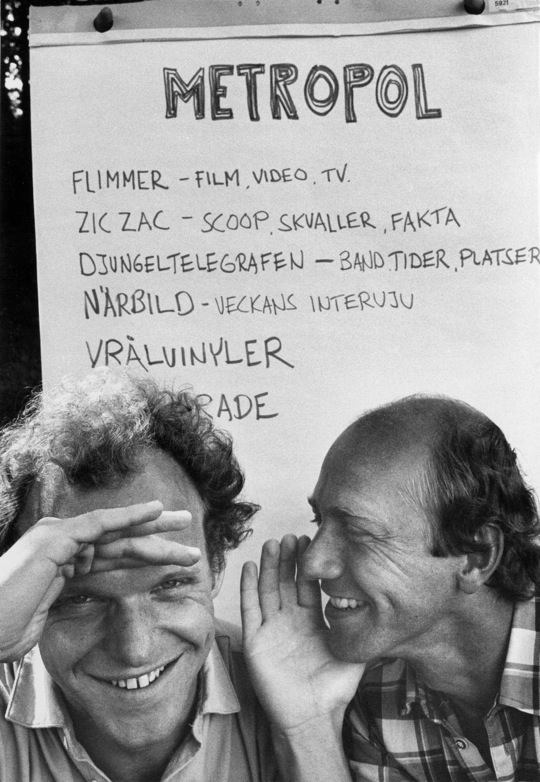 5921
METROPOL
FLIMMER - FILM, VIDEO, TV.
ZIC ZAC - SCOOP, SKVALLER, FAKTA
DJUNGELTELEGRAFEN - BAND, TIDER, PLATSER
NÄRBILD - VECKANS INTERVJU
VRÅLVINYLER
RADE